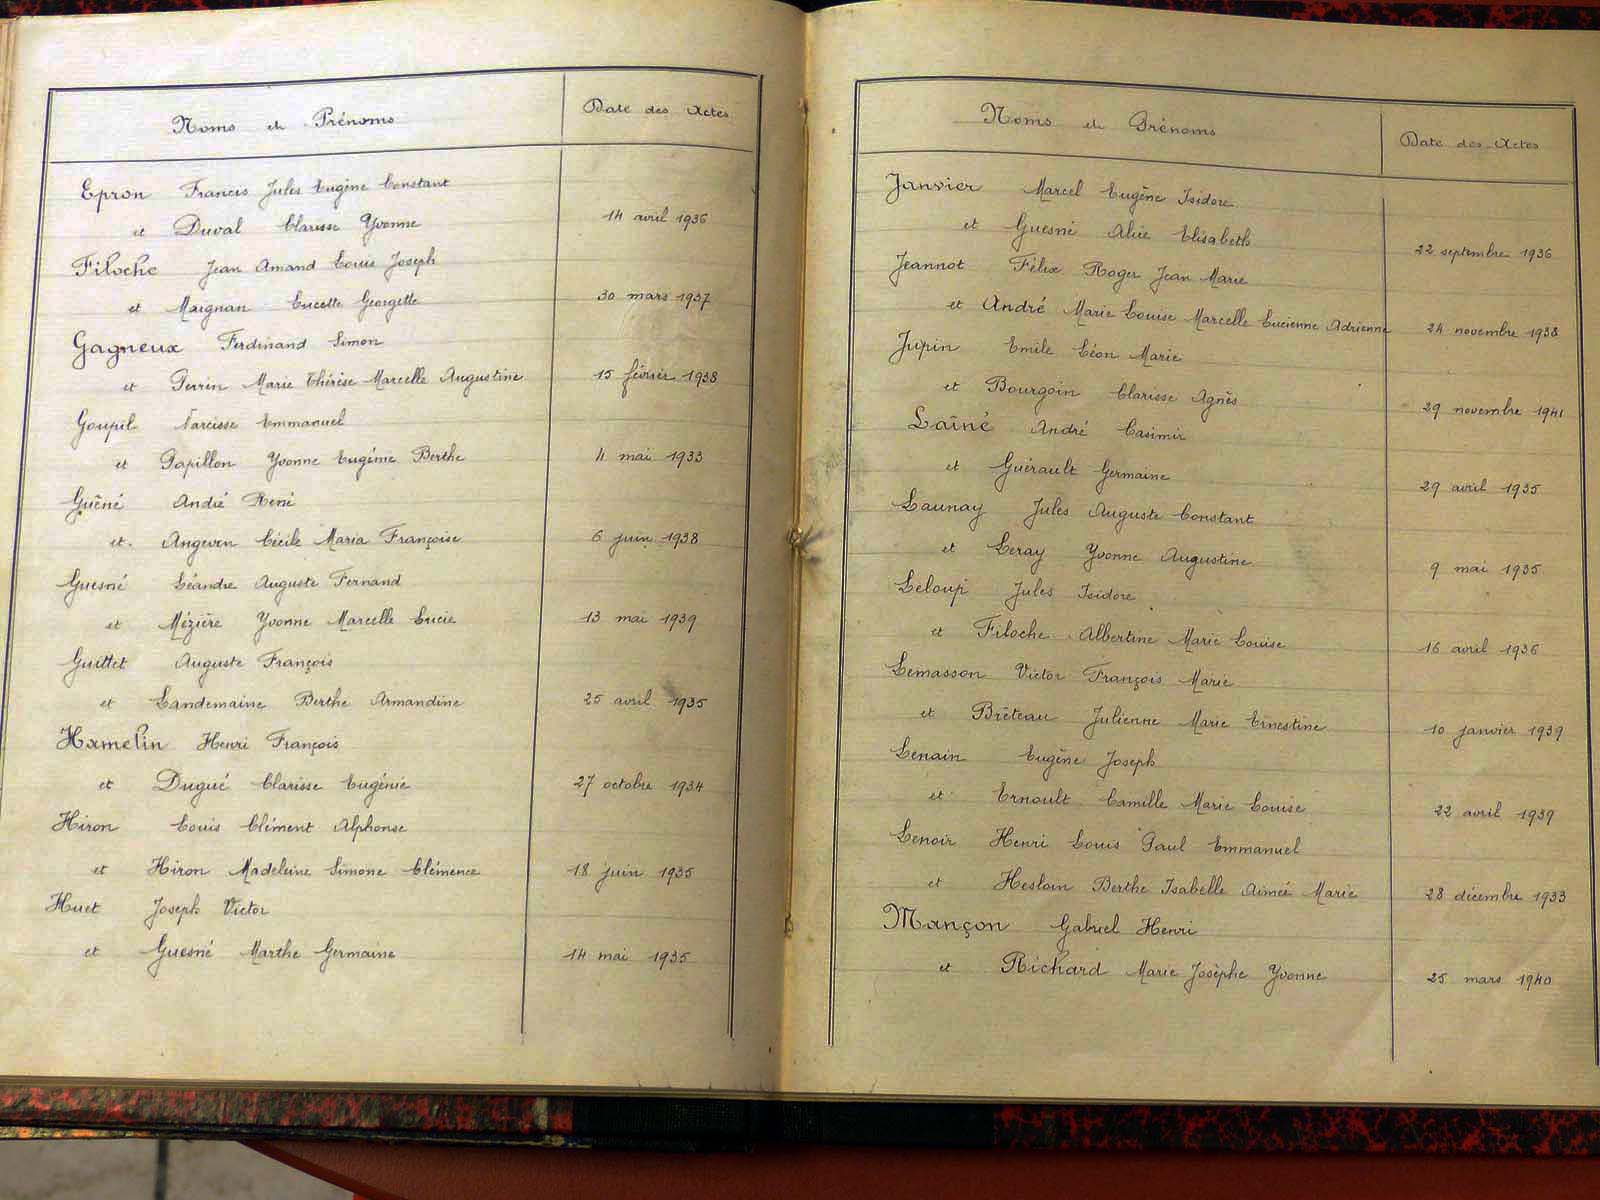 Noms et Prénoms Date des Actes
Epron Francis Jules Eugène Constant
et Duval Clarisse Yvonne 14 avril 1936
Filoche Jean Amand Louis Joseph
et Maignan Lucette Georgette 30 mars 1937
Gagneux Ferdinand Simon
et Perrin Marie Thérèse Marcelle Augustine 15 février 1938
Goupil Narcisse Emmanuel
et Papillon Yvonne Eugénie Berthe 4 mai 1933
Guéné André René
et Angevin Cécile Maria Françoise 6 juin 1938
Guesné Léandre Auguste Fernand
et Mézière Yvonne Marcelle Lucie 13 mai 1939
Guittet Auguste François
et Landemaine Berthe Armandine 25 avril 1935
Hamelin Henri François
et Dugué Clarisse Eugénie 27 octobre 1934
Hiron Louis Clément Alphonse
et Hiron Madeleine Simone Clémence 18 juin 1935
Huet Joseph Victor
et Guesné Marthe Germaine 14 mai 1935
Noms et Prénoms Date des Actes
Janvier Marcel Eugène Isidore
et Guesné Alice Elisabeth 22 septembre 1936
Jeannot Félix Roger Jean Marie
et André Marie Louise Marcelle Lucienne Adrienne 24 novembre 1938
Jupin Emile Léon Marie
et Bourgoin Clarisse Agnès 29 novembre 1941
Lainé André Casimir
et Guérault Germaine 29 avril 1935
Launay Jules Auguste Constant
et Leray Yvonne Augustine 9 mai 1935
Leloup Jules Isidore
et Filoche Albertine Marie Louise 16 avril 1936
Lemasson Victor François Marie
et Bréteau Julienne Marie Ernestine 10 janvier 1939
Lenain Eugène Joseph
et Ernoult Camille Marie Louise 22 avril 1939
Lenoir Henri Louis Paul Emmanuel
et Heslain Berthe Isabelle Aimée Marie 28 décembre 1933
Mançon Gabriel Henri
et Richard Marie Josèphe Yvonne 25 mars 1940